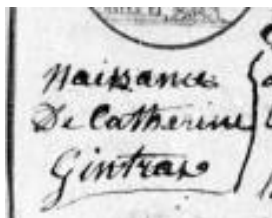 Naissance
De Catherine
Gintras